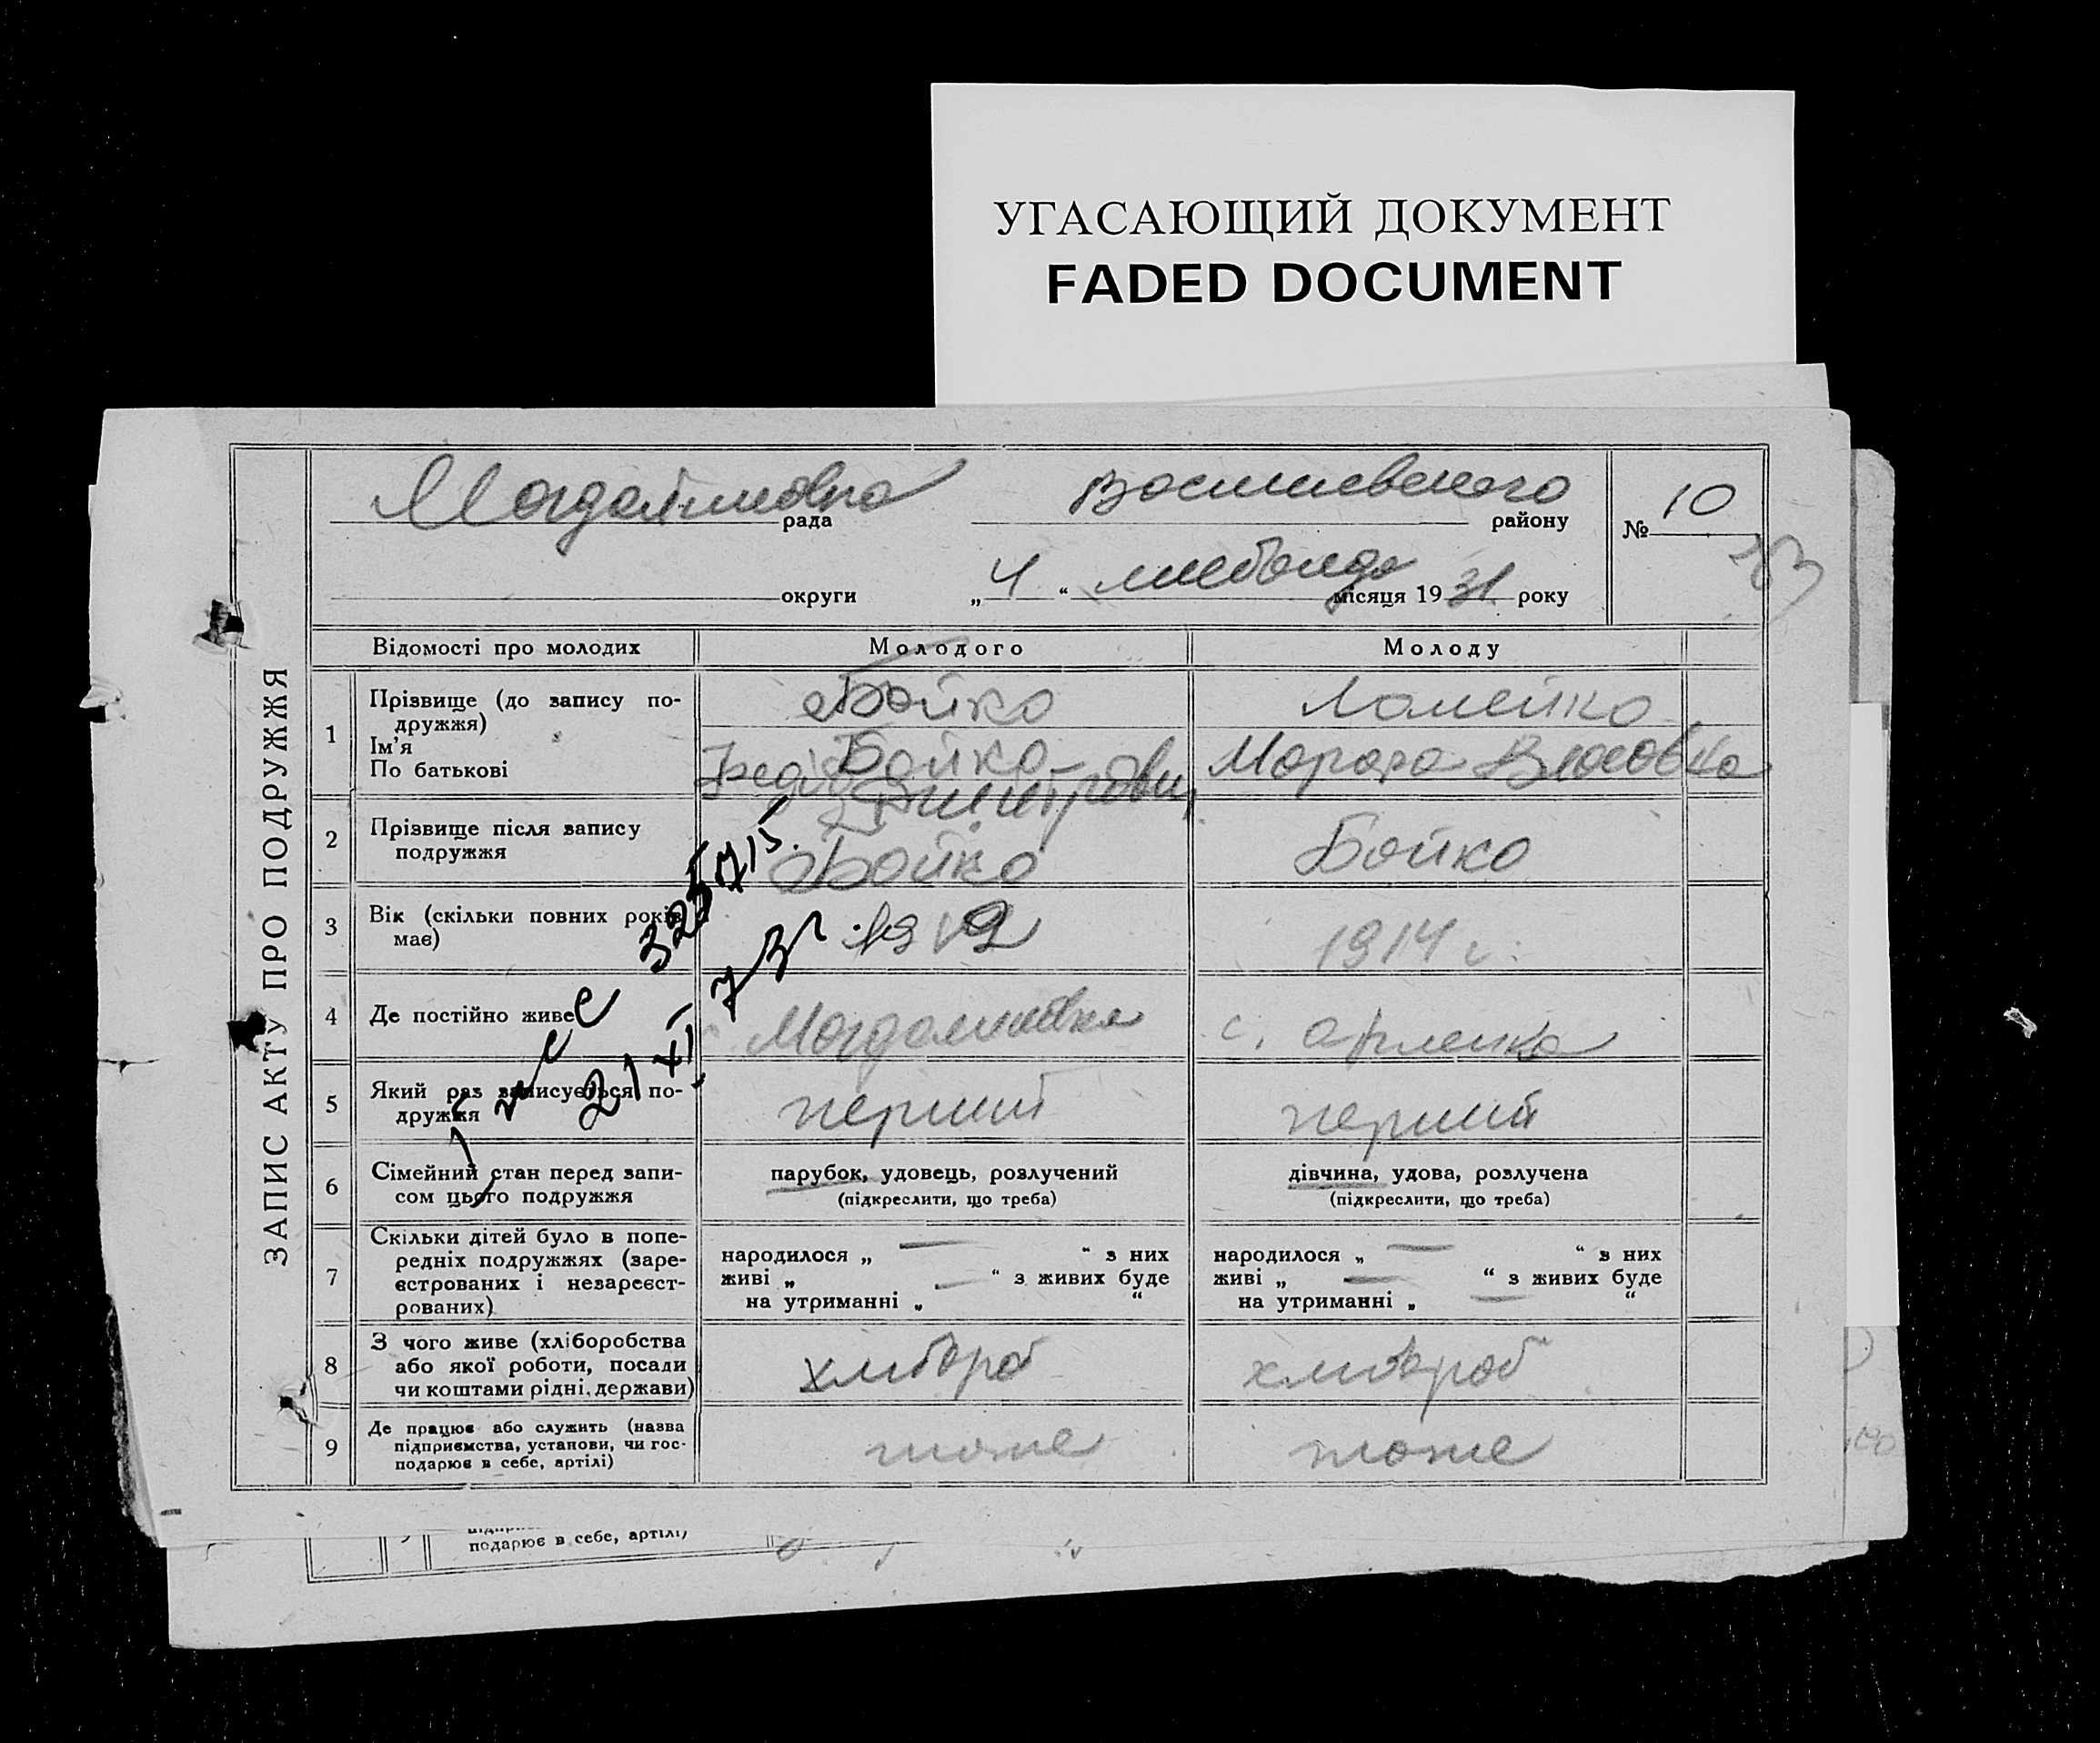 УГАСАЮЩИЙ ДОКУМЕНТ
FADED DOCUMENT
ЗАПИС АКТУ ПРО ПОДРУЖЖЯ
рада
района
№ 10
округи
„ 4 “ місяця 19 31 року
Відомості про молодих
Молодого
Молоду
1
Прізвище (до запису по-
дружжя)
Ім'я
По батькові
Бойко
Бойко
Ломейко
2
Прізвище після запису
подружжя
Бойко
Бойко
3
Вік (скільки повних років
має)
1914 г.
4
Де постійно живе
с.
5
Який раз записується по-
дружжя
перший
перший
325715
21 XI 73 г
6
Сімейний стан перед запи-
сом цього подружжя
парубок, удовець, розлучений
(підкреслити, що треба)
дівчина, удова, розлучена
(підкреслити, що треба)
7
Скільки дітей було в попе-
редніх подружжях (заре-
єстрованих і незареєст-
рованих)
народилося „ — “ з них
живі „ — “ з живих буде
на утриманні „ “
народилося „ — “ з них
живі „ — “ з живих буде
на утриманні „ — “
8
З чого живе (хліборобства
або якої роботи, посади
чи коштами рідні, держави)
хлибороб
хлибороб
9
Де працює або служить (назва
підприємства, установи, чи гос-
подарює в себе, артілі)
тоже
тоже
подарює в себе, артілі)